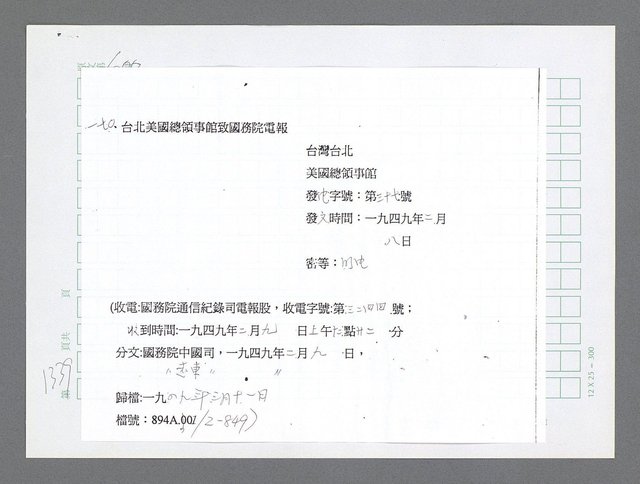 一七〇. 台北美國總領事館致國務院電報
台灣台北
美國總領事館
發电字號：第三十七號
發文時間：一九四九年二月
八日
密等：
(收電:國務院通信紀錄司電報股，收電字號:第三二四四號；
收到時間:一九四九年二月九 日上午 點廿二 分
分文:國務院中國司，一九四九年二月九 日，
〃遠東〃 〃
歸檔:一九四九年三月十一日
檔號：894A.00/2-849)
1339
第 頁共 頁
12 X 25 = 300